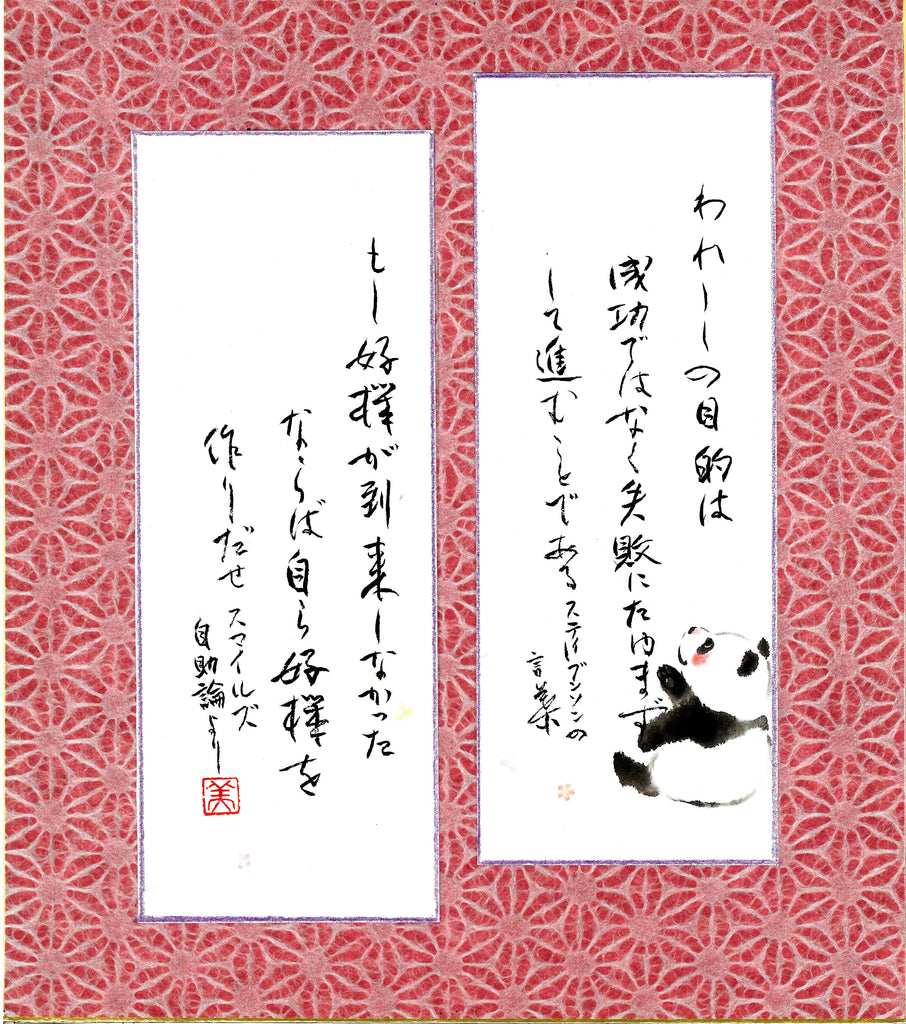 われ〱の目的は
成功ではなく失敗にたゆまず
して進むことである スティーブンソンの
言葉
もし好機が到来しなかった
ならば自ら好機を
作りだせ スマイルズ
自助論より
美